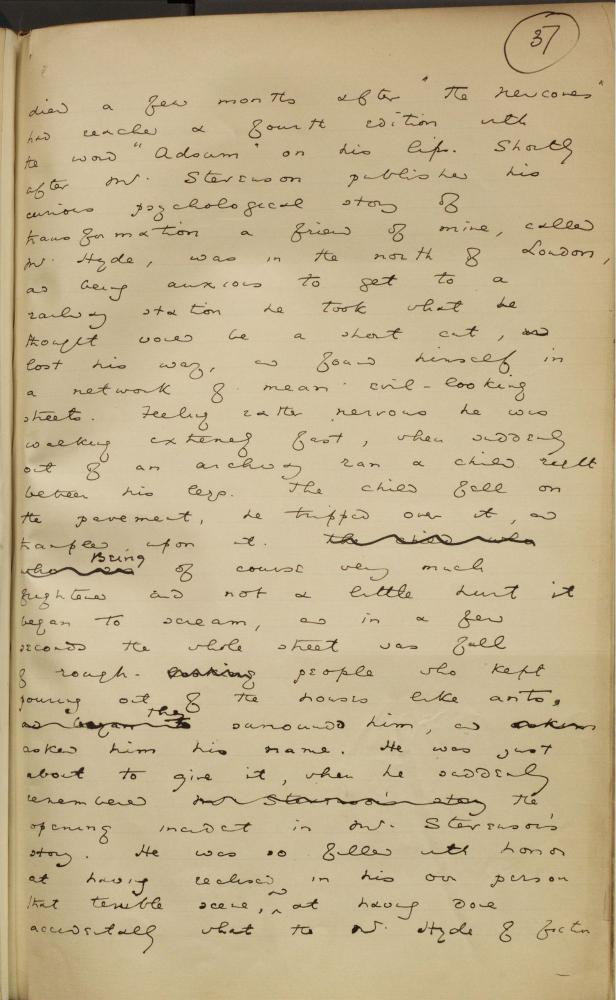 37
died a few months after "The Newcomes"
had reached a fourth edition with
the word "Adsum" on his lips. Shortly
after Mr. Stevenson published his
curious psychological story of
transformation a friend of mine, called
Mr. Hyde, was in the north of London,
and being anxious to get to a
railway station he took what he
thought would be a short cut,
lost his way, and found himself in
a network of mean evil-looking
streets. Feeling rather nervous he was
walking extremely fast, when suddenly
out of an archway ran a child right
between his legs. The child fell on
the pavement, he tripped over it, and
trampled upon it. the child who
who was Being of course very much
frightened and not a little hurt it
began to scream, and in a few
seconds the whole street was full
of rough looking people who kept
pouring out of the houses like ants.
and began to they surrounded him, and asking
asked him his name. He was just
about to give it, when he suddenly
remembered Mr Stevenson's story the
opening incident in Mr. Stevenson's
story. He was so filled with horror
at having realised in his own person
that terrible scene, at having done
accidentally what the Mr. Hyde of fiction